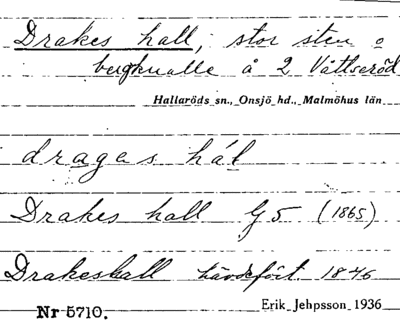 Drakes hall, stor sten o
bergknalle å 2 Vättseröd
Hallaröds sn., Onsjö hd., Malmöhus län
drages hál
Drakes hall G5 (1865)
Drakeshall 1846
Nr 5710.
Erik Jehpsson 1936